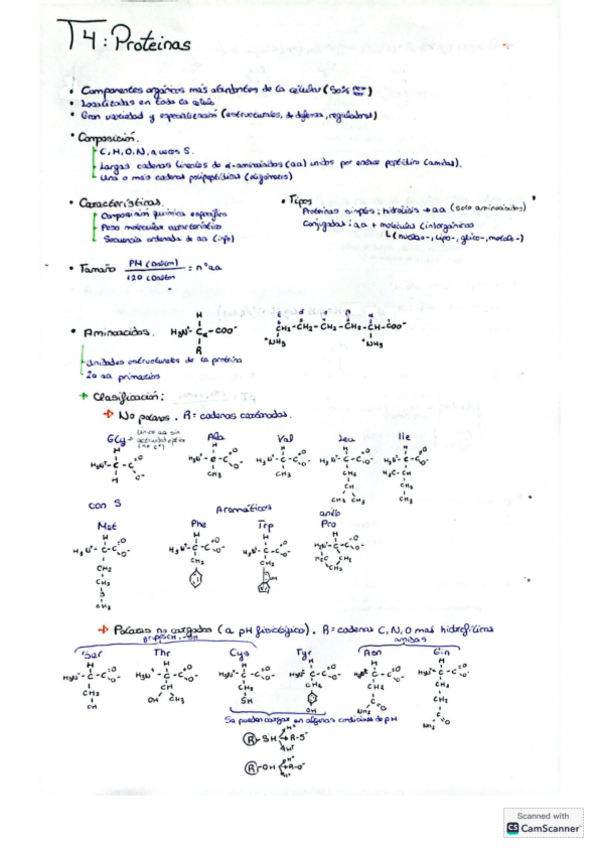 T4: Proteínas
• Componentes orgánicos más abundantes de la célula (50% peso seco)
• Localizadas en toda la célula
• Gran variedad y especialización (estructurales, de defensa, reguladoras)
• Composición.
C, H, O, N, a veces S.
Largas cadenas lineales de α-aminoácidos (aa) unidos por enlace peptídico (amidas).
Una o más cadenas polipeptídicas (oligómeros)
• Características.
Composición química específica
Peso molecular característico
Secuencia ordenada de aa (info)
• Tipos
Proteínas simples: hidrólisis → aa (solo aminoácidos)
Conjugadas: aa + moléculas (in)orgánicas
(nucleo-, lipo-, glico-, metalo-)
• Tamaño PM (Dalton) / 120 Dalton = nº aa
• Aminoácidos. H₃N⁺-Cα-COO⁻
H
R
CH₂-CH₂-CH₂-CH₂-CH-COO⁻
⁺NH₃ ⁺NH₃
Unidades estructurales de la proteína
20 aa primarios
+ Clasificación:
→ No polares. R = cadenas carbonadas.
Gly → único aa sin actividad óptica
Ala Val Leu Ile
con S Aromáticos anillo
Met Phe Trp Pro
→ Polares no cargados (a pH fisiológico). R = cadenas C, N, O más hidrofílicas
grupos CH, -OH amidas
Ser Thr Cys Tyr Asn Gln
Se pueden cargar en algunas condiciones de pH
R-SH R-S⁻
R-OH R-O⁻
Scanned with
CS CamScanner